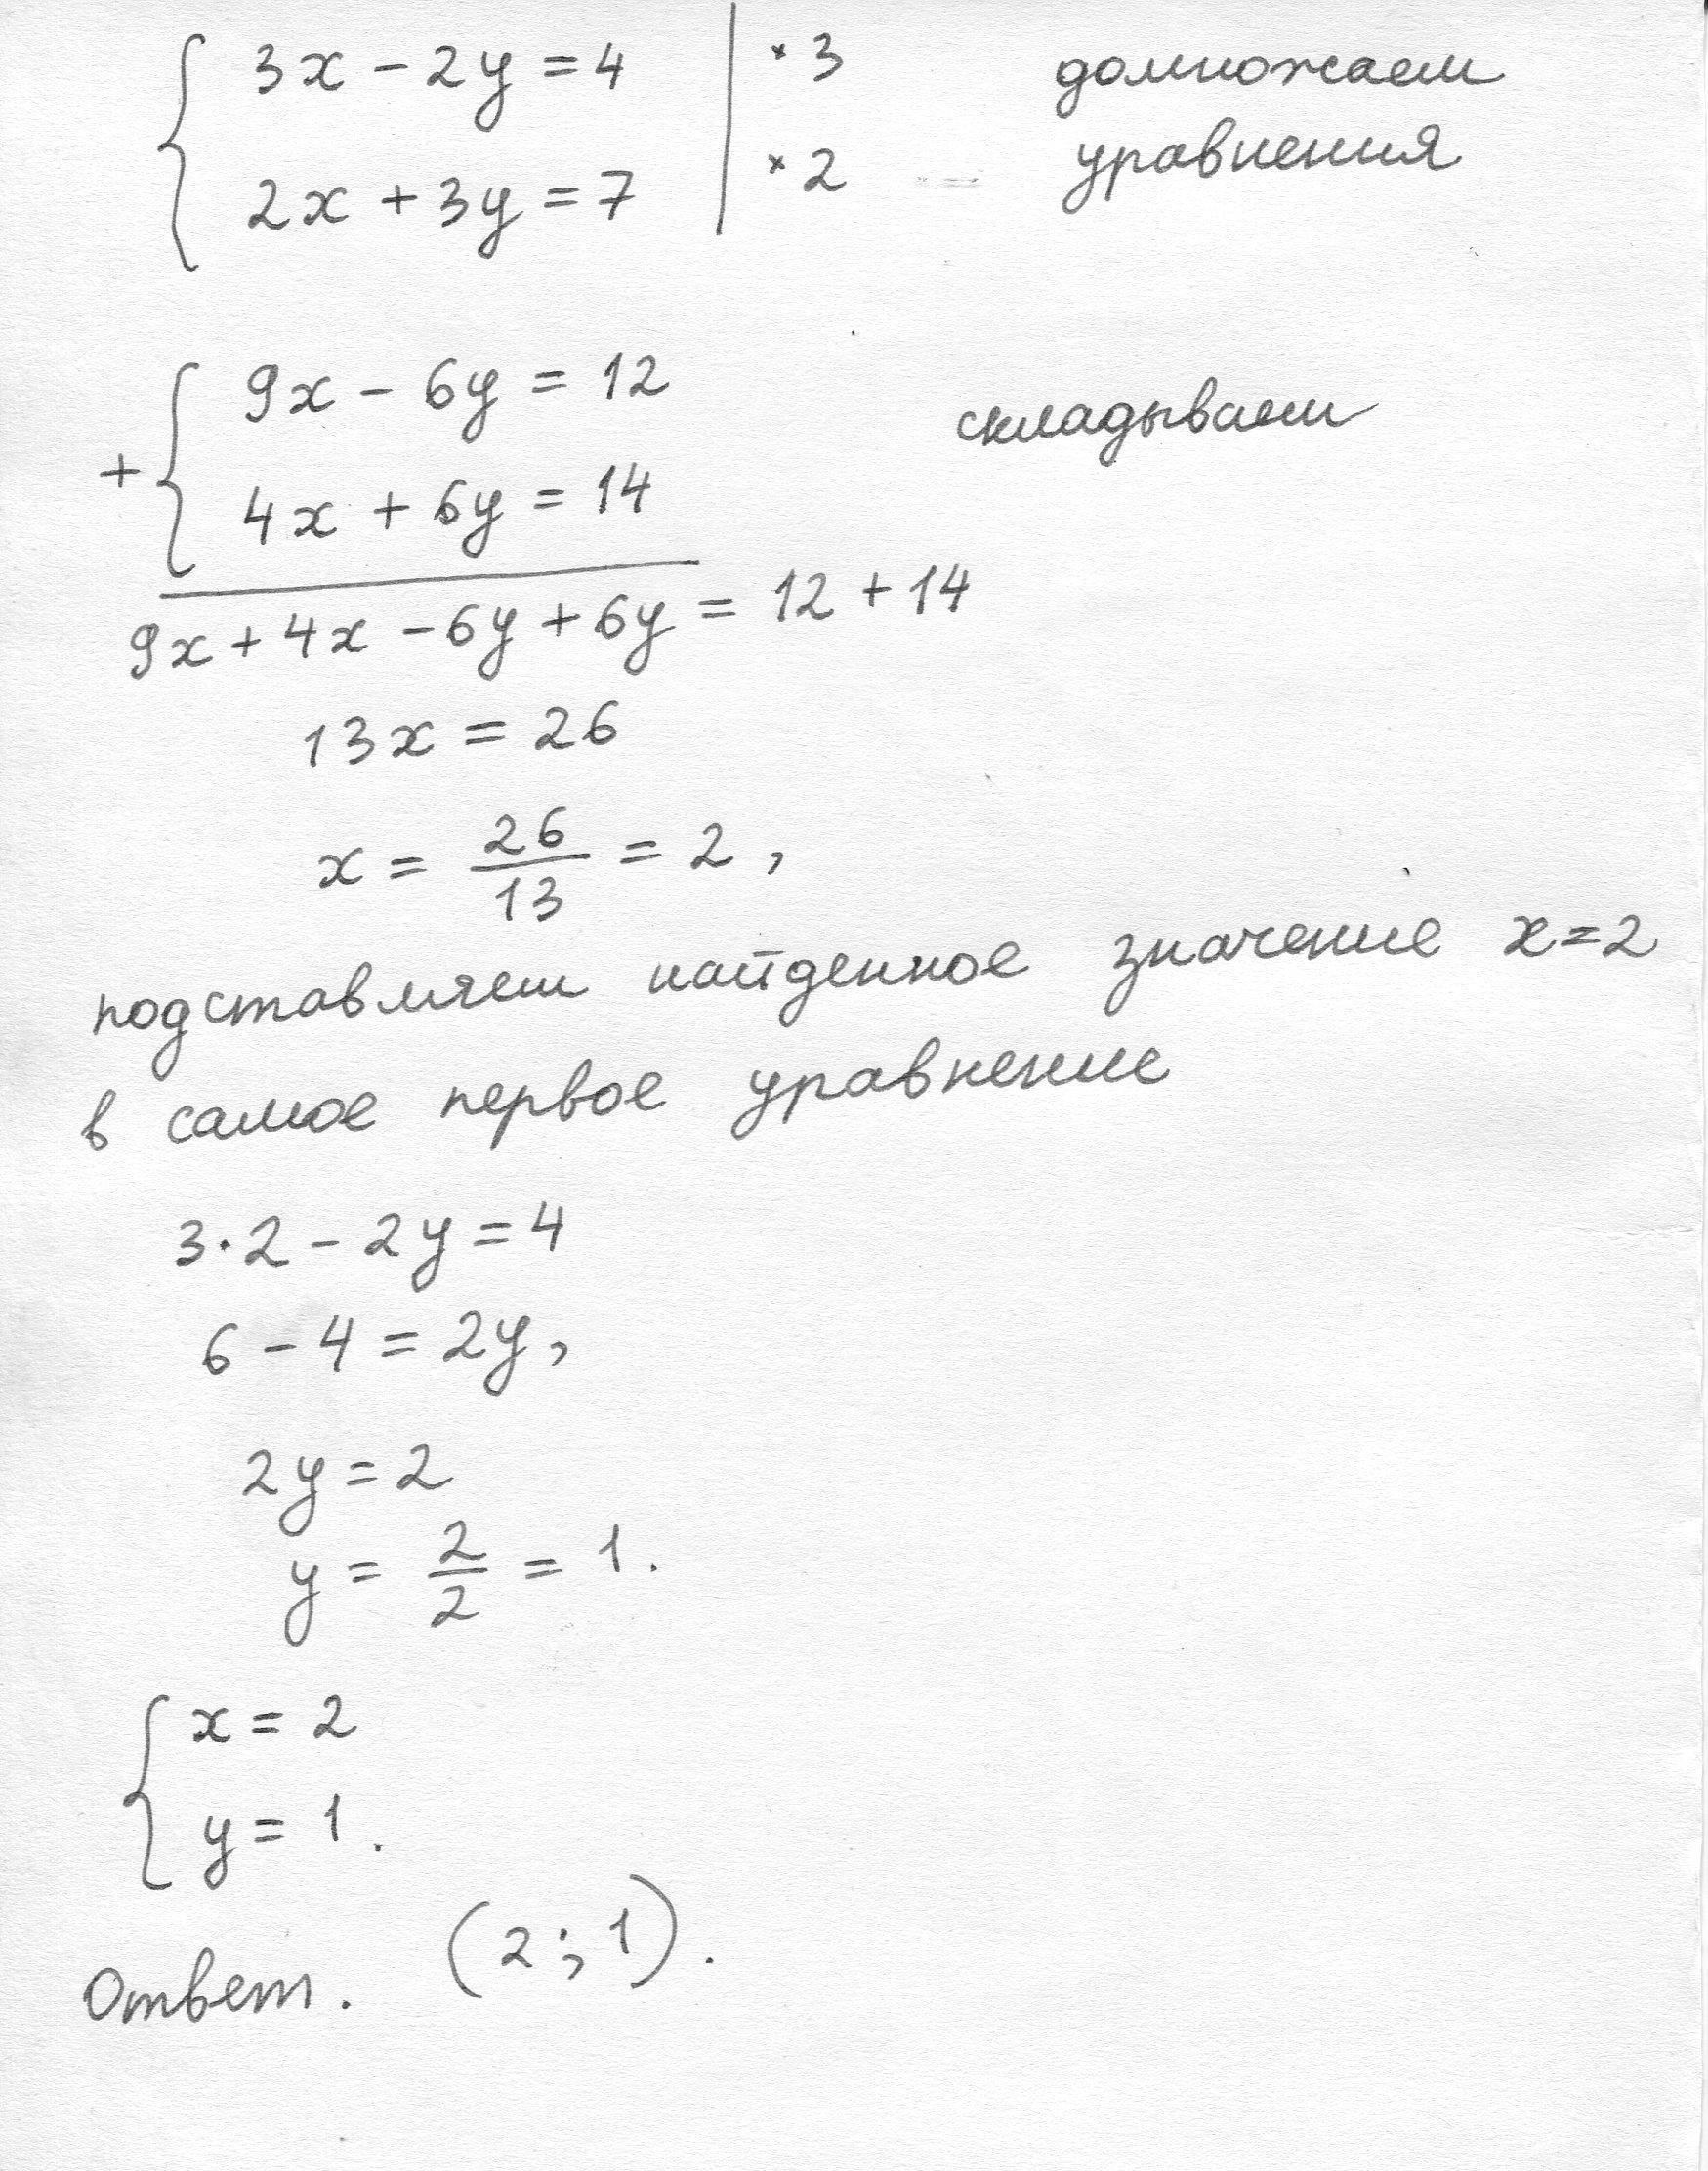 3x - 2y = 4 | × 3 домножаем
2x + 3y = 7 | × 2 уравнения
9x - 6y = 12
складываем
+
4x + 6y = 14
9x + 4x - 6y + 6y = 12 + 14
13x = 26
x = 26/13 = 2,
подставляем найденное значение x=2
в самое первое уравнение
3·2 - 2y = 4
6 - 4 = 2y,
2y = 2
y = 2/2 = 1.
x = 2
y = 1.
Ответ. (2; 1).